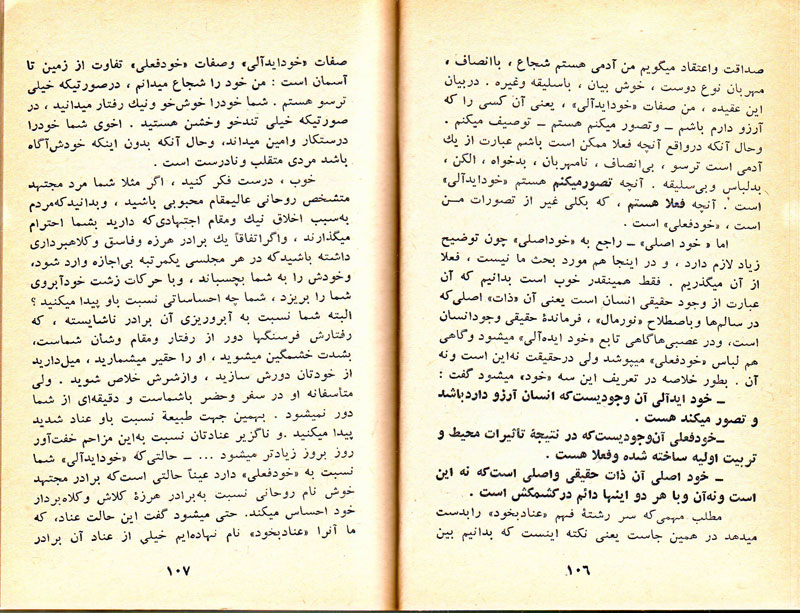 صداقت واعتقاد میگویم من آدمی هستم شجاع ، باانصاف ،
مهربان نوع دوست ، خوش بیان ، باسلیقه وغیره . دربیان
این عقیده ، من صفات «خودایدآلی» ، یعنی آن کسی را که
آرزو دارم باشم ــ وتصور میکنم هستم ــ توصیف میکنم .
وحال آنکه درواقع آنچه فعلا ممکن است باشم عبارت از یك
آدمی است ترسو ، بی‌انصاف ، نامهربان ، بدخواه ، الکن ،
بدلباس وبی‌سلیقه . آنچه تصورمیکنم هستم «خودایدآلی»
است . آنچه فعلا هستم ، که بکلی غیر از تصورات مــن
است ، «خودفعلی» است .
اما « خود اصلی» ــ راجع به «خوداصلی» چون توضیح
زیاد لازم دارد ، و در اینجا هم مورد بحث ما نیست ، فعلا
از آن میگذریم . فقط همینقدر خوب است بدانیم که آن
عبارت از وجود حقیقی انسان است یعنی آن «ذات» اصلی‌که
در سالم‌ها وباصطلاح «نورمال» ، فرماندهٔ حقیقی وجودانسان
است، ودر عصبی‌هاگاهی تابع «خود ایده‌آلی» میشود وگاهی
هم لباس «خودفعلی» میپوشد ولی درحقیقت نه‌این است ونه
آن . بطور خلاصه در تعریف این سه «خود» میشود گفت :
ــ خود ایدآلی آن وجودیست‌که انسان آرزو داردباشد
و تصور میکند هست .
ــ‌خودفعلی آن‌وجودیست‌که در نتیجهٔ تأثیرات محیط و
تربیت اولیه ساخته شده وفعلا هست .
ــ خود اصلی آن ذات حقیقی واصلی است‌که نه این
است ونه‌آن وبا هر دو اینها دائم درکشمکش است .
مطلب مهمی‌که سر رشتهٔ فهم «عنادبخود» رابدست
میدهد در همین جاست یعنی نکته اینست که بدانیم بین
۱۰۶
صفات «خودایدآلی» وصفات «خودفعلی» تفاوت از زمین تا
آسمان است : من خود را شجاع میدانم ، درصورتیکه خیلی
ترسو هستم . شما خودرا خوش‌خو ونیك رفتار میدانید ، در
صورتیکه خیلی تندخو وخشن هستید . اخوی شما خودرا
درستکار وامین میداند، وحال آنکه بدون اینکه خودش‌آگاه
باشد مردی متقلب ونادرست است .
خوب ، درست فکر کنید ، اگر مثلا شما مرد مجتهد
متشخص روحانی عالیمقام محبوبی باشید ، وبدانیدکه‌مردم
به‌سبب اخلاق نیك ومقام اجتهادی‌که دارید بشما احترام
میگذارند ، واگراتفاقاً یك برادر هرزه وفاسق وکلاهبرداری
داشته باشیدکه در هر مجلسی یکمرتبه بی‌اجازه وارد شود،
وخودش را به شما بچسباند ، وبا حرکات زشت خودآبروی
شما را بریزد ، شما چه احساساتی نسبت باو پیدا میکنید ؟
البته شما نسبت به آبروریزی آن برادر ناشایسته ، که
رفتارش فرسنگها دور از رفتار ومقام وشأن شماست،
بشدت خشمگین میشوید ، او را حقیر میشمارید ، میل‌دارید
از خودتان دورش سازید ، وازشرش خلاص شوید . ولی
متأسفانه او در سفر وحضر باشماست و دقیقه‌ای از شما
دور نمیشود . بهمین جهت طبیعةً نسبت باو عناد شدید
پیدا میکنید .و ناگزیر عنادتان نسبت به‌این مزاحم خفت‌آور
روز بروز زیادتر میشود ... ــ حالتی‌که «خودایدآلی» شما
نسبت به «خودفعلی» دارد عیناً حالتی است‌که برادر مجتهد
خوش نام روحانی نسبت به‌برادر هرزهٔ کلاش وکلاه‌بردار
خود احساس میکند. حتی میشود گفت این حالت عناد، که
ما آنرا «عنادبخود» نام نهاده‌ایم خیلی از عناد آن برادر
۱۰۷